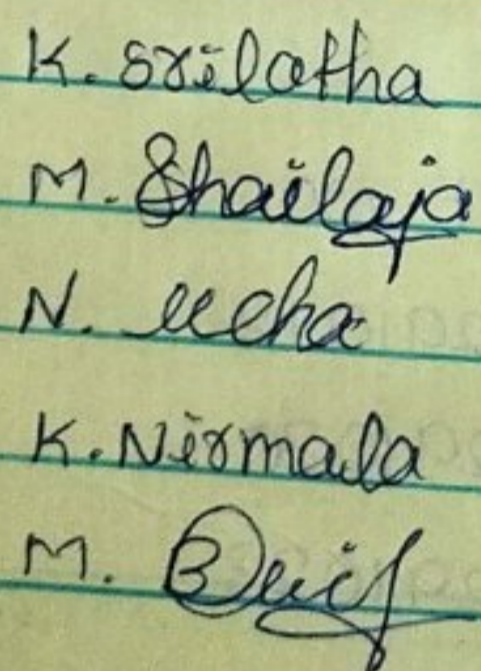 K. Srilatha
M. Shailaja
N. Usha
K. Nirmala
M.